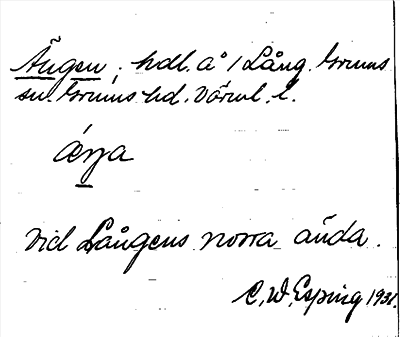 Ängen, hdl. å / Lång. Grums
sn. Grums hd. Värml. l.
äŋa
vid Långens norra ända.
C. W. Esping 1931.